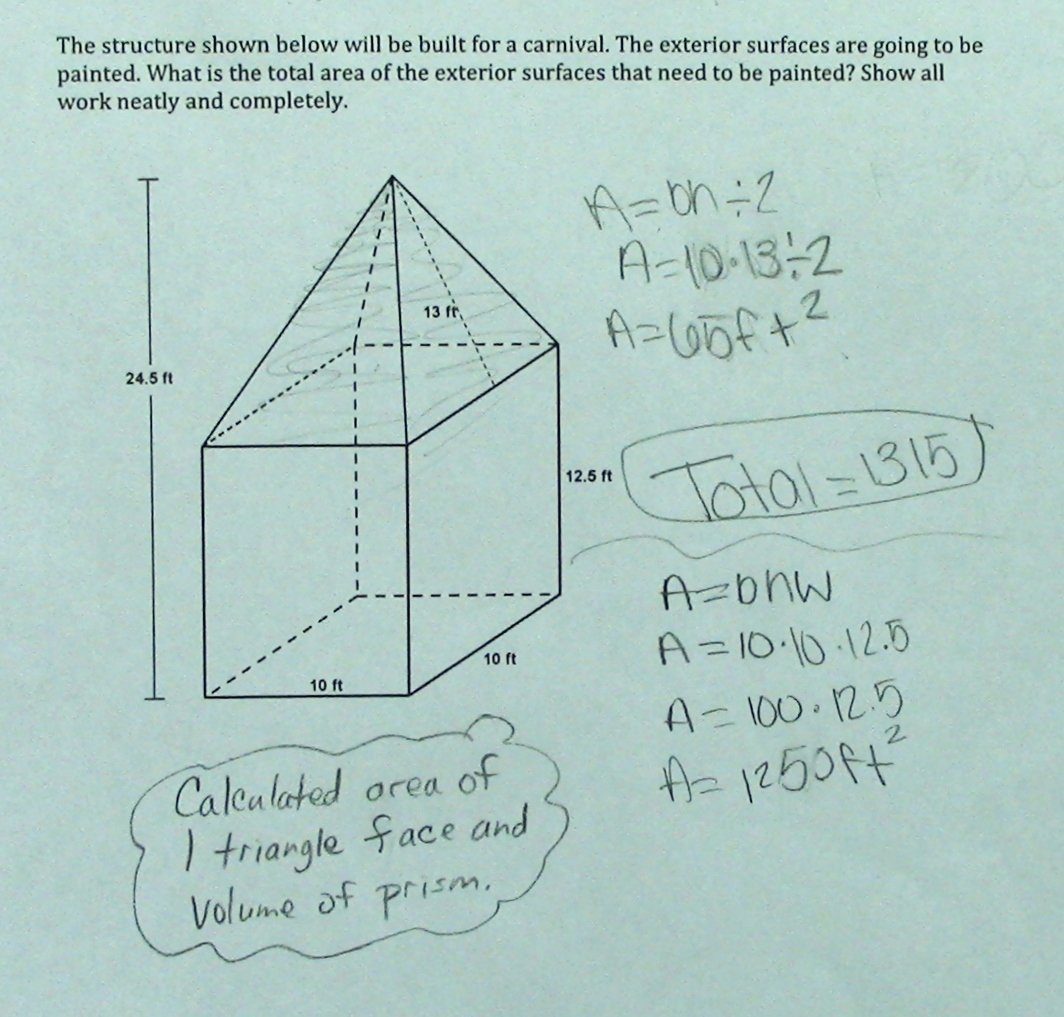 The structure shown below will be built for a carnival. The exterior surfaces are going to be
painted. What is the total area of the exterior surfaces that need to be painted? Show all
work neatly and completely.
A=bh÷2
A=10·13÷2
A=65ft²
13 ft
24.5 ft
12.5 ft
Total=1315
A=bhw
A=10·10·12.5
10 ft
10 ft
A=100·12.5
A=1250ft²
Calculated area of
1 triangle face and
volume of prism.